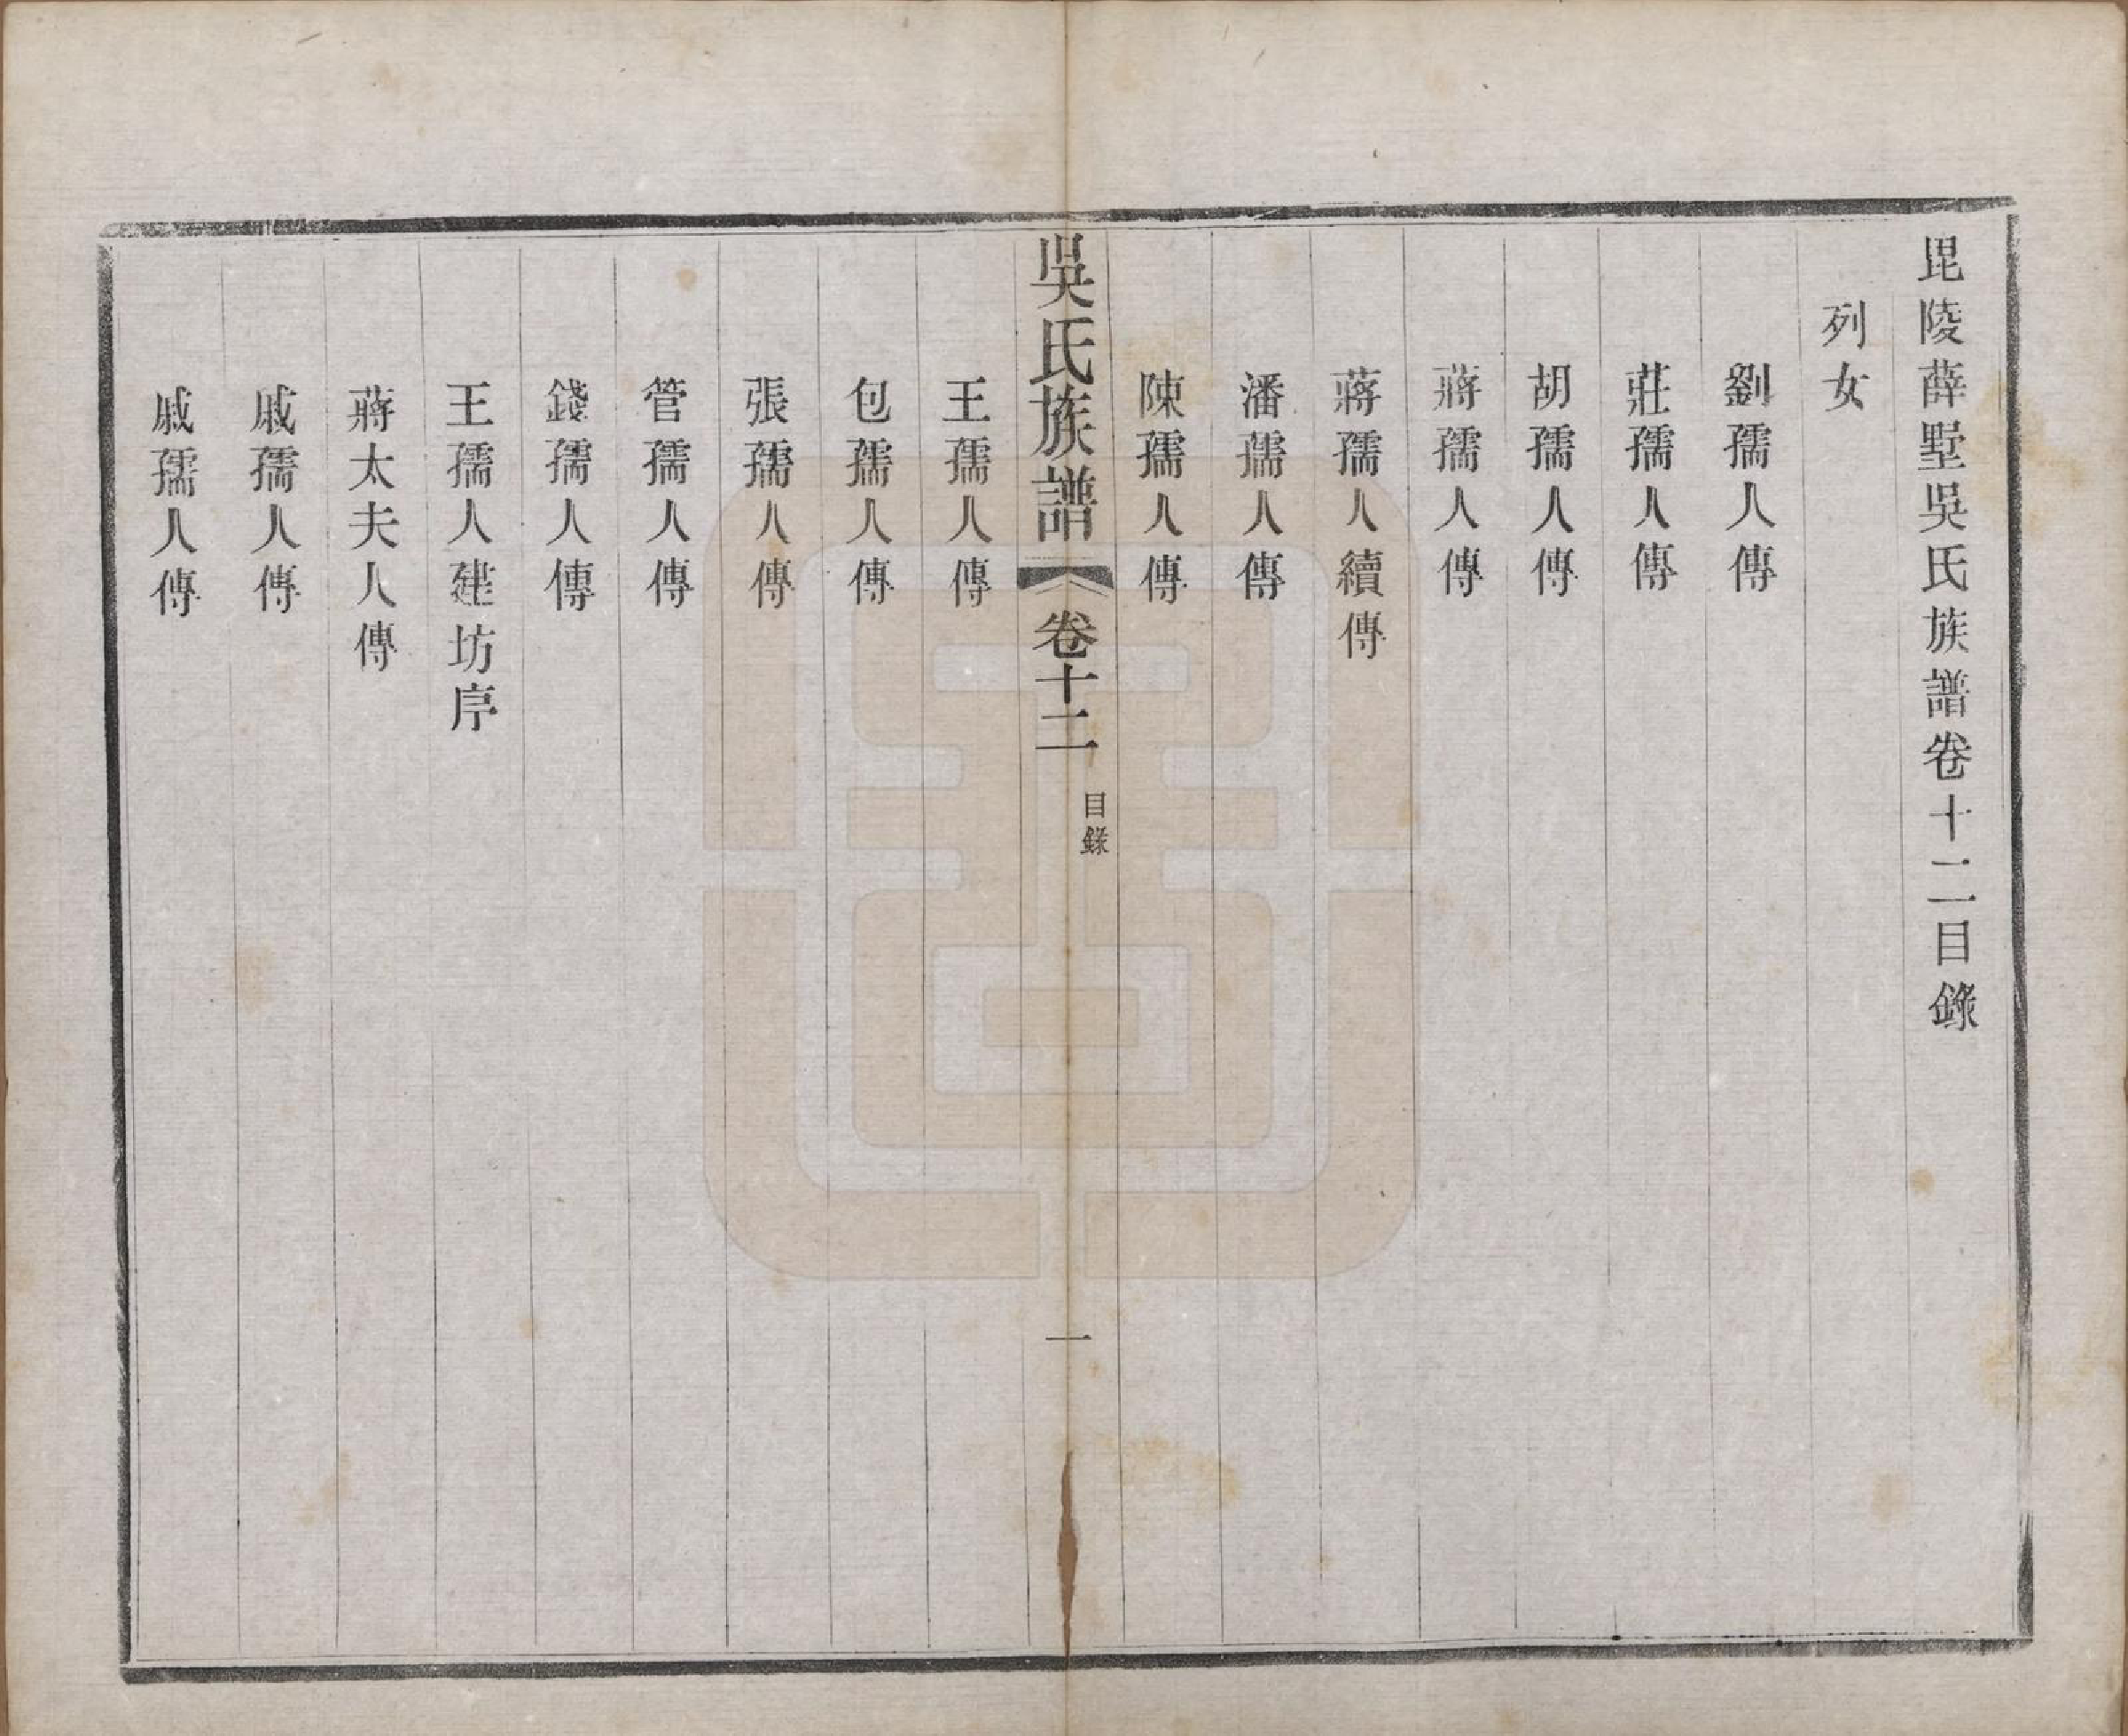 毘陵薛墅吳氏族譜卷十二目錄
列女
劉孺人傳
莊孺人傳
胡孺人傳
蔣孺人傳
蔣孺人續傳
潘孺人傳
陳孺人傳
吳氏族譜
卷十二
目錄
一
王孺人傳
包孺人傳
張孺人傳
管孺人傳
錢孺人傳
王孺人建坊序
蔣太夫人傳
戚孺人傳
戚孺人傳